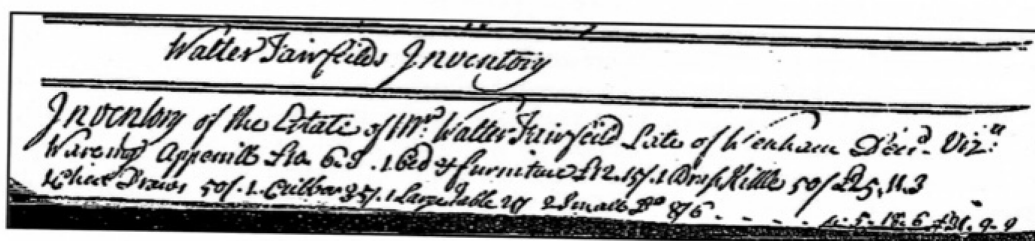 Walter Fairfeilds Inventory
Inventory of the Estate of Mr. Walter Fairfeild Late of Wenham Decd. Viz:
Wareing Apperrill £10. 6. 1 Bed & furniture £12. 15/. 1 Brass Kittle 50/ £25. 11. 3
Chest Draws 50/. 1 35/. 1 Large Table 20/ 2 Small Do 8/6 - - - - 5. 18. 6